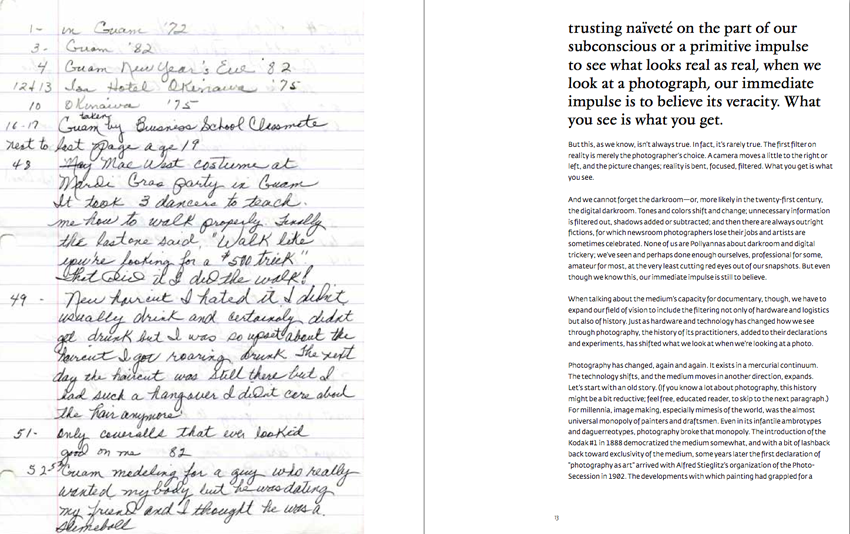 1- in Guam '72
3- Guam '82
4 Guam New Year's Eve '82
12+13 Hotel Okinawa '75
10 Okinawa '75
taken
16-17 Guam by Business School Classmate
next to last page age 19
48 May Mae West costume at
Mardi Gras party in Guam
It took 3 dancers to teach
me how to walk properly. Finally
the last one said, "Walk like
you're looking for a $500 trick"
That did it I did the walk!
49 - New haircut I hated it. I didn't
usually drink and certainly didnt
get drunk but I was so upset about the
haircut I got roaring drunk The next
day the haircut was still there but I
had such a hangover I didnt care about
the hair anymore
51- only coveralls that ever looked
good on me 82
52 Guam modeling for a guy who really
wanted my body but he was dating
my friend and I thought he was a
slimeball
trusting naïveté on the part of our
subconscious or a primitive impulse
to see what looks real as real, when we
look at a photograph, our immediate
impulse is to believe its veracity. What
you see is what you get.
But this, as we know, isn't always true. In fact, it's rarely true. The first filter on
reality is merely the photographer's choice. A camera moves a little to the right or
left, and the picture changes; reality is bent, focused, filtered. What you get is what
you see.
And we cannot forget the darkroom—or, more likely in the twenty-first century,
the digital darkroom. Tones and colors shift and change; unnecessary information
is filtered out, shadows added or subtracted; and then there are always outright
fictions, for which newsroom photographers lose their jobs and artists are
sometimes celebrated. None of us are Pollyannas about darkroom and digital
trickery; we've seen and perhaps done enough ourselves, professional for some,
amateur for most, at the very least cutting red eyes out of our snapshots. But even
though we know this, our immediate impulse is still to believe.
When talking about the medium's capacity for documentary, though, we have to
expand our field of vision to include the filtering not only of hardware and logistics
but also of history. Just as hardware and technology has changed how we see
through photography, the history of its practitioners, added to their declarations
and experiments, has shifted what we look at when we're looking at a photo.
Photography has changed, again and again. It exists in a mercurial continuum.
The technology shifts, and the medium moves in another direction, expands.
Let's start with an old story. (If you know a lot about photography, this history
might be a bit reductive; feel free, educated reader, to skip to the next paragraph.)
For millennia, image making, especially mimesis of the world, was the almost
universal monopoly of painters and draftsmen. Even in its infantile ambrotypes
and daguerreotypes, photography broke that monopoly. The introduction of the
Kodak #1 in 1888 democratized the medium somewhat, and with a bit of lashback
back toward exclusivity of the medium, some years later the first declaration of
"photography as art" arrived with Alfred Stieglitz's organization of the Photo-
Secession in 1902. The developments with which painting had grappled for a